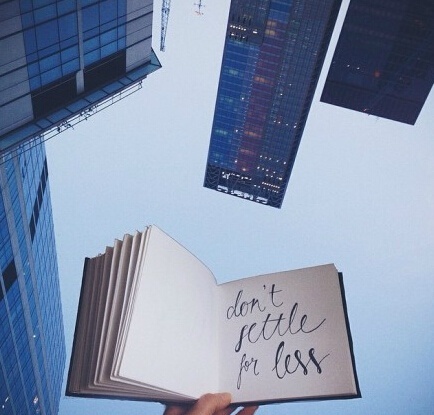 don't
settle
for less